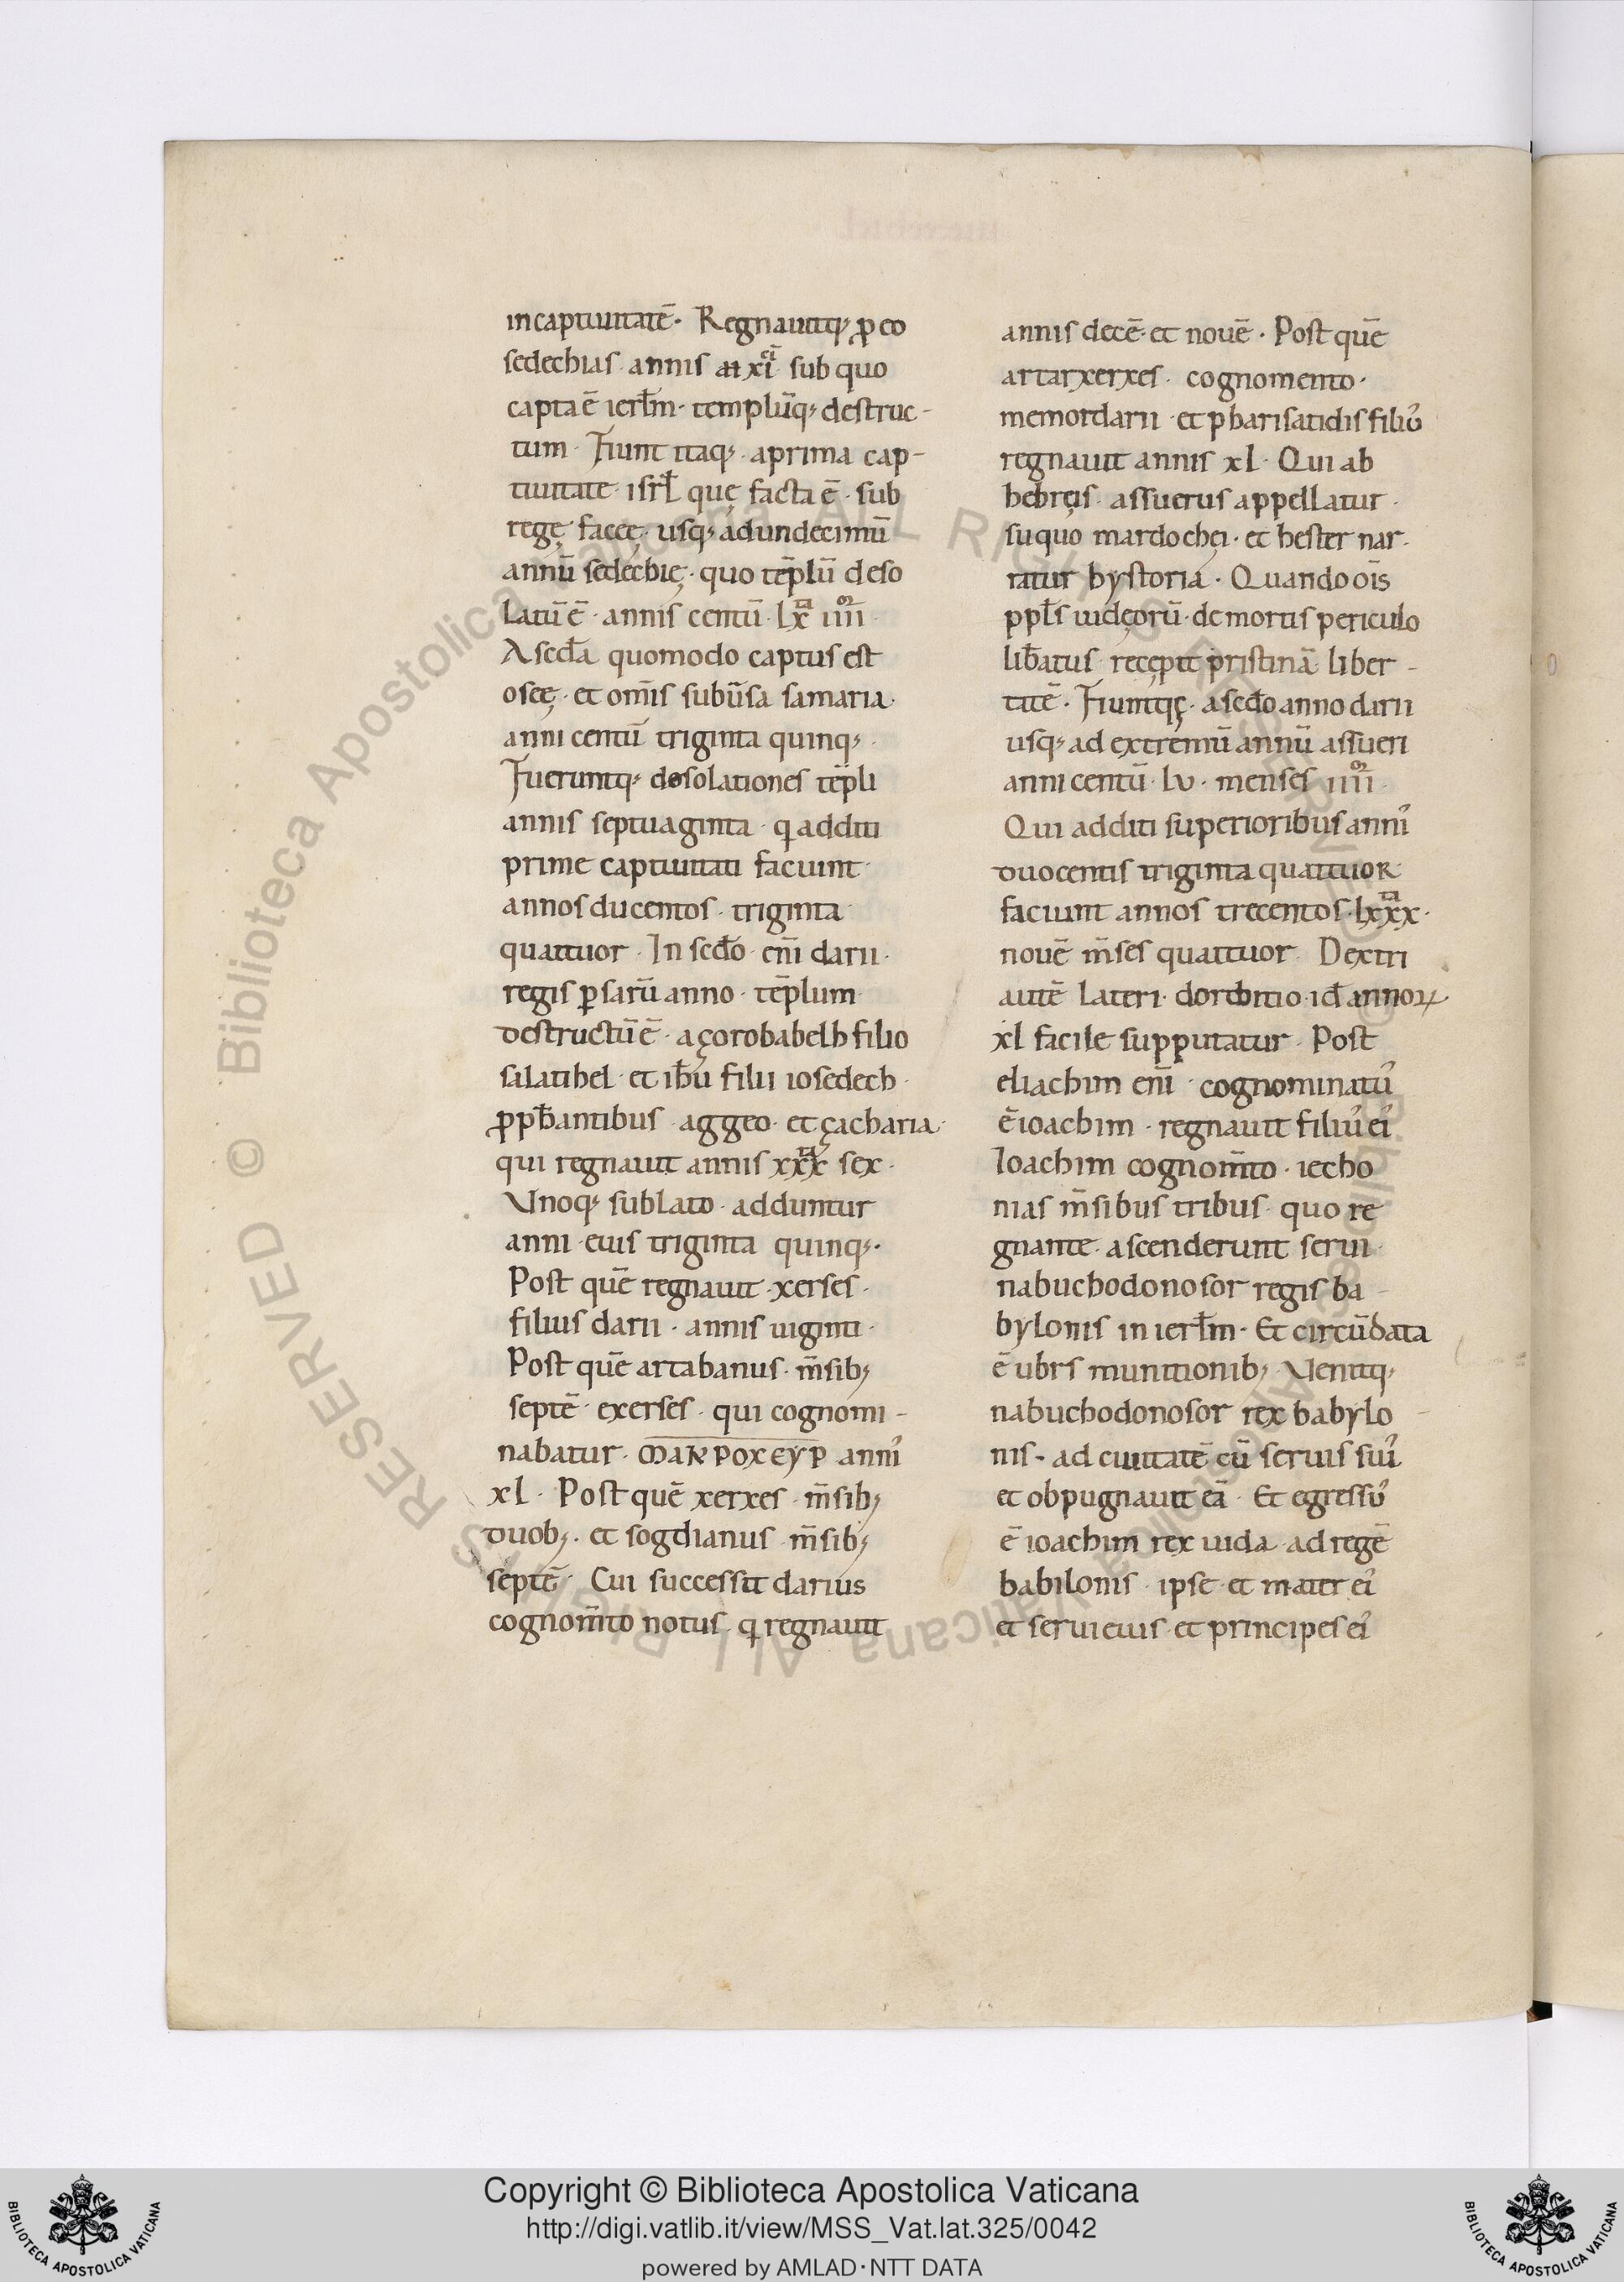 incaptiuitatē· Regnauitq; ꝓ eo
sedechias· annis xi sub quo
capta ē ierłm· templūq; destruc-
tum· Fiunt itaq; aprima cap-
tiuitate· isrł quę facta ē· sub
regę facęe· usq; adundecimū
annū sedechię· quo tēplū deso
Latū ē· annis centū· Lx̄ iiii·
A scđa quomodo captus est
oseę· et om̄is subūsa samaria·
anni centū triginta quinq;·
Fueruntq; desolationes tēpli
annis septuaginta· q additi
prime captiuitati faciunt·
annos ducentos· triginta
quattuor· In scđo· eni̅ darii·
regis ꝑsarū anno· tēplum
destructū ē· açorobabelh filio
salatihel· et ih̄u filii iosedech·
ꝓph̄antibus· aggeo· et çacharia·
qui regnauit annis xxx sex·
Vnoq; sublato· adduntur
anni· eius triginta quinq;·
Post quē regnauit· xerses·
filius darii· annis uiginti·
Post quē artabanus· m̄sib;
septē· exerses· qui cognomi-
nabatur· ΜΑΚΡΟΧΕΥΡ anni᾽
xl· Post quē xerxes· m̄sib;
duob;· et sogdianus· m̄sib;
septē· Cui successit darius
cognom̄to notus· q regnauit
annis decē· et nouē· Post quē
artarxerxes· cognomento·
memordarii· et pharisatidis filiu᾽
regnauit annis xl· Qui ab
hebręis· assuerus appellatur·
suquo mardochęi· et hester nar-
ratur hystoria· Quando oīs
ppłs iudęorū· de mortis periculo
lib̄atus· recępit pristinā liber-
tatē· Fiuntqę· a scđo anno darii
usq; ad extremū annū assueri
anni centū· lv· menses iiii·
Qui additi superioribus anni᾽
duocentis triginta quattuor·
faciunt annos trecentos· lxxx·
nouē m̄ses quattuor· Dextri
autē Lateri· dorditio· id̄ annoꝝ
xl facile supputatur· Post
eliachim eni̅· cognominatu᾽
ē ioachim· regnauit filiu᾽ ei᾽
Ioachim cognom̄to· iecho
nias m̄sibus tribus· quo re
gnante· ascenderunt serui·
nabuchodonosor regis ba-
bylonis in ierłm· Et circūdata
ē ubrs munitionib;· Venitq;
nabuchodonosor rex babylo
nis· ad ciuitatē cū seruis sui᾽
et obpugnauit eā· Et egressu᾽
ē ioachim rex iuda· ad regē
babilonis· ipse· et mater ei᾽
et serui eius· et principes ei᾽
Copyright © Biblioteca Apostolica Vaticana
http://digi.vatlib.it/view/MSS_Vat.lat.325/0042
powered by AMLAD·NTT DATA
BIBLIOTECA APOSTOLICA VATICANA
BIBLIOTECA APOSTOLICA VATICANA